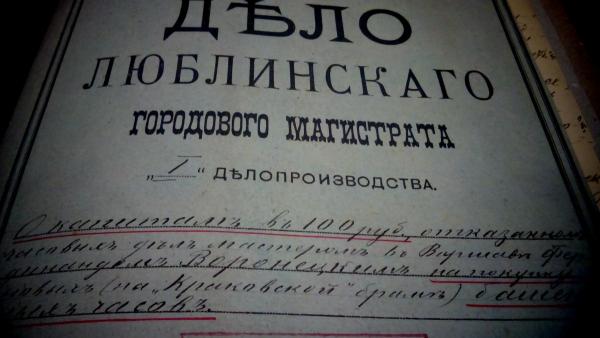 ДѢЛО
ЛЮБЛИНСКАГО
ГОРОДОВОГО МАГИСТРАТА
„I“ ДѢЛОПРОИЗВОДСТВА.
О капиталѣ въ 100 руб., отказанном
часовыхъ дѣлъ мастеромъ въ Варшавѣ Фер
Воронецкимъ на покупку
(на „Краковской“ брамѣ) башен
ныхъ часовъ.